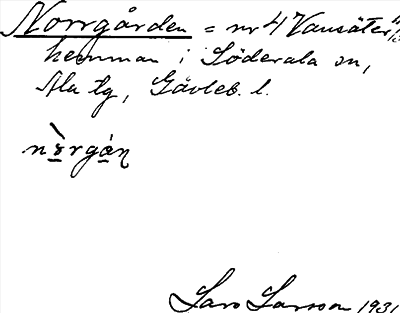 Norrgården = nr 4 Vansäter
hemman i Söderala sn,
Ala tg, Gävleb. l.
nòrgán
Lars Larsson 1931